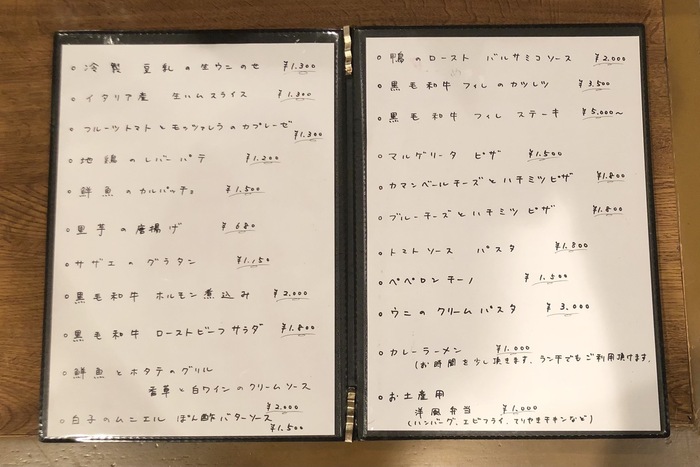 ○ 冷製 豆乳の生ウニのせ ¥1.300
○ イタリア産 生ハムスライス ¥1.300
○ フルーツトマトとモッツァレラのカプレーゼ
¥1.300
○ 地鶏のレバーパテ ¥1.200
○ 鮮魚のカルパッチョ ¥1.500
○ 里芋の唐揚げ ¥680
○ サザエのグラタン ¥1.150
○ 黒毛和牛 ホルモン煮込み ¥2.000
○ 黒毛和牛 ローストビーフサラダ ¥1.800
○ 鮮魚とホタテのグリル
香草と白ワインのクリームソース
¥2.000
○ 白子のムニエル ぽん酢バターソース
¥1.500
○ 鴨のロースト バルサミコソース ¥2.000
○ 黒毛和牛フィレのカツレツ ¥3.500
○ 黒毛和牛 フィレ ステーキ ¥5.000~
○ マルゲリータ ピザ ¥1.500
○ カマンベールチーズとハチミツピザ ¥1.800
○ ブルーチーズとハチミツ ピザ ¥1.800
○ トマトソース パスタ ¥1.800
○ ペペロンチーノ ¥1.500
○ ウニのクリームパスタ ¥3.000
○ カレーラーメン ¥1.000
(お時間を少し頂きます。ランチでもご利用頂けます。
○ お土産用
洋風弁当 ¥1.000
(ハンバーグ、エビフライ、てりやきチキンなど)